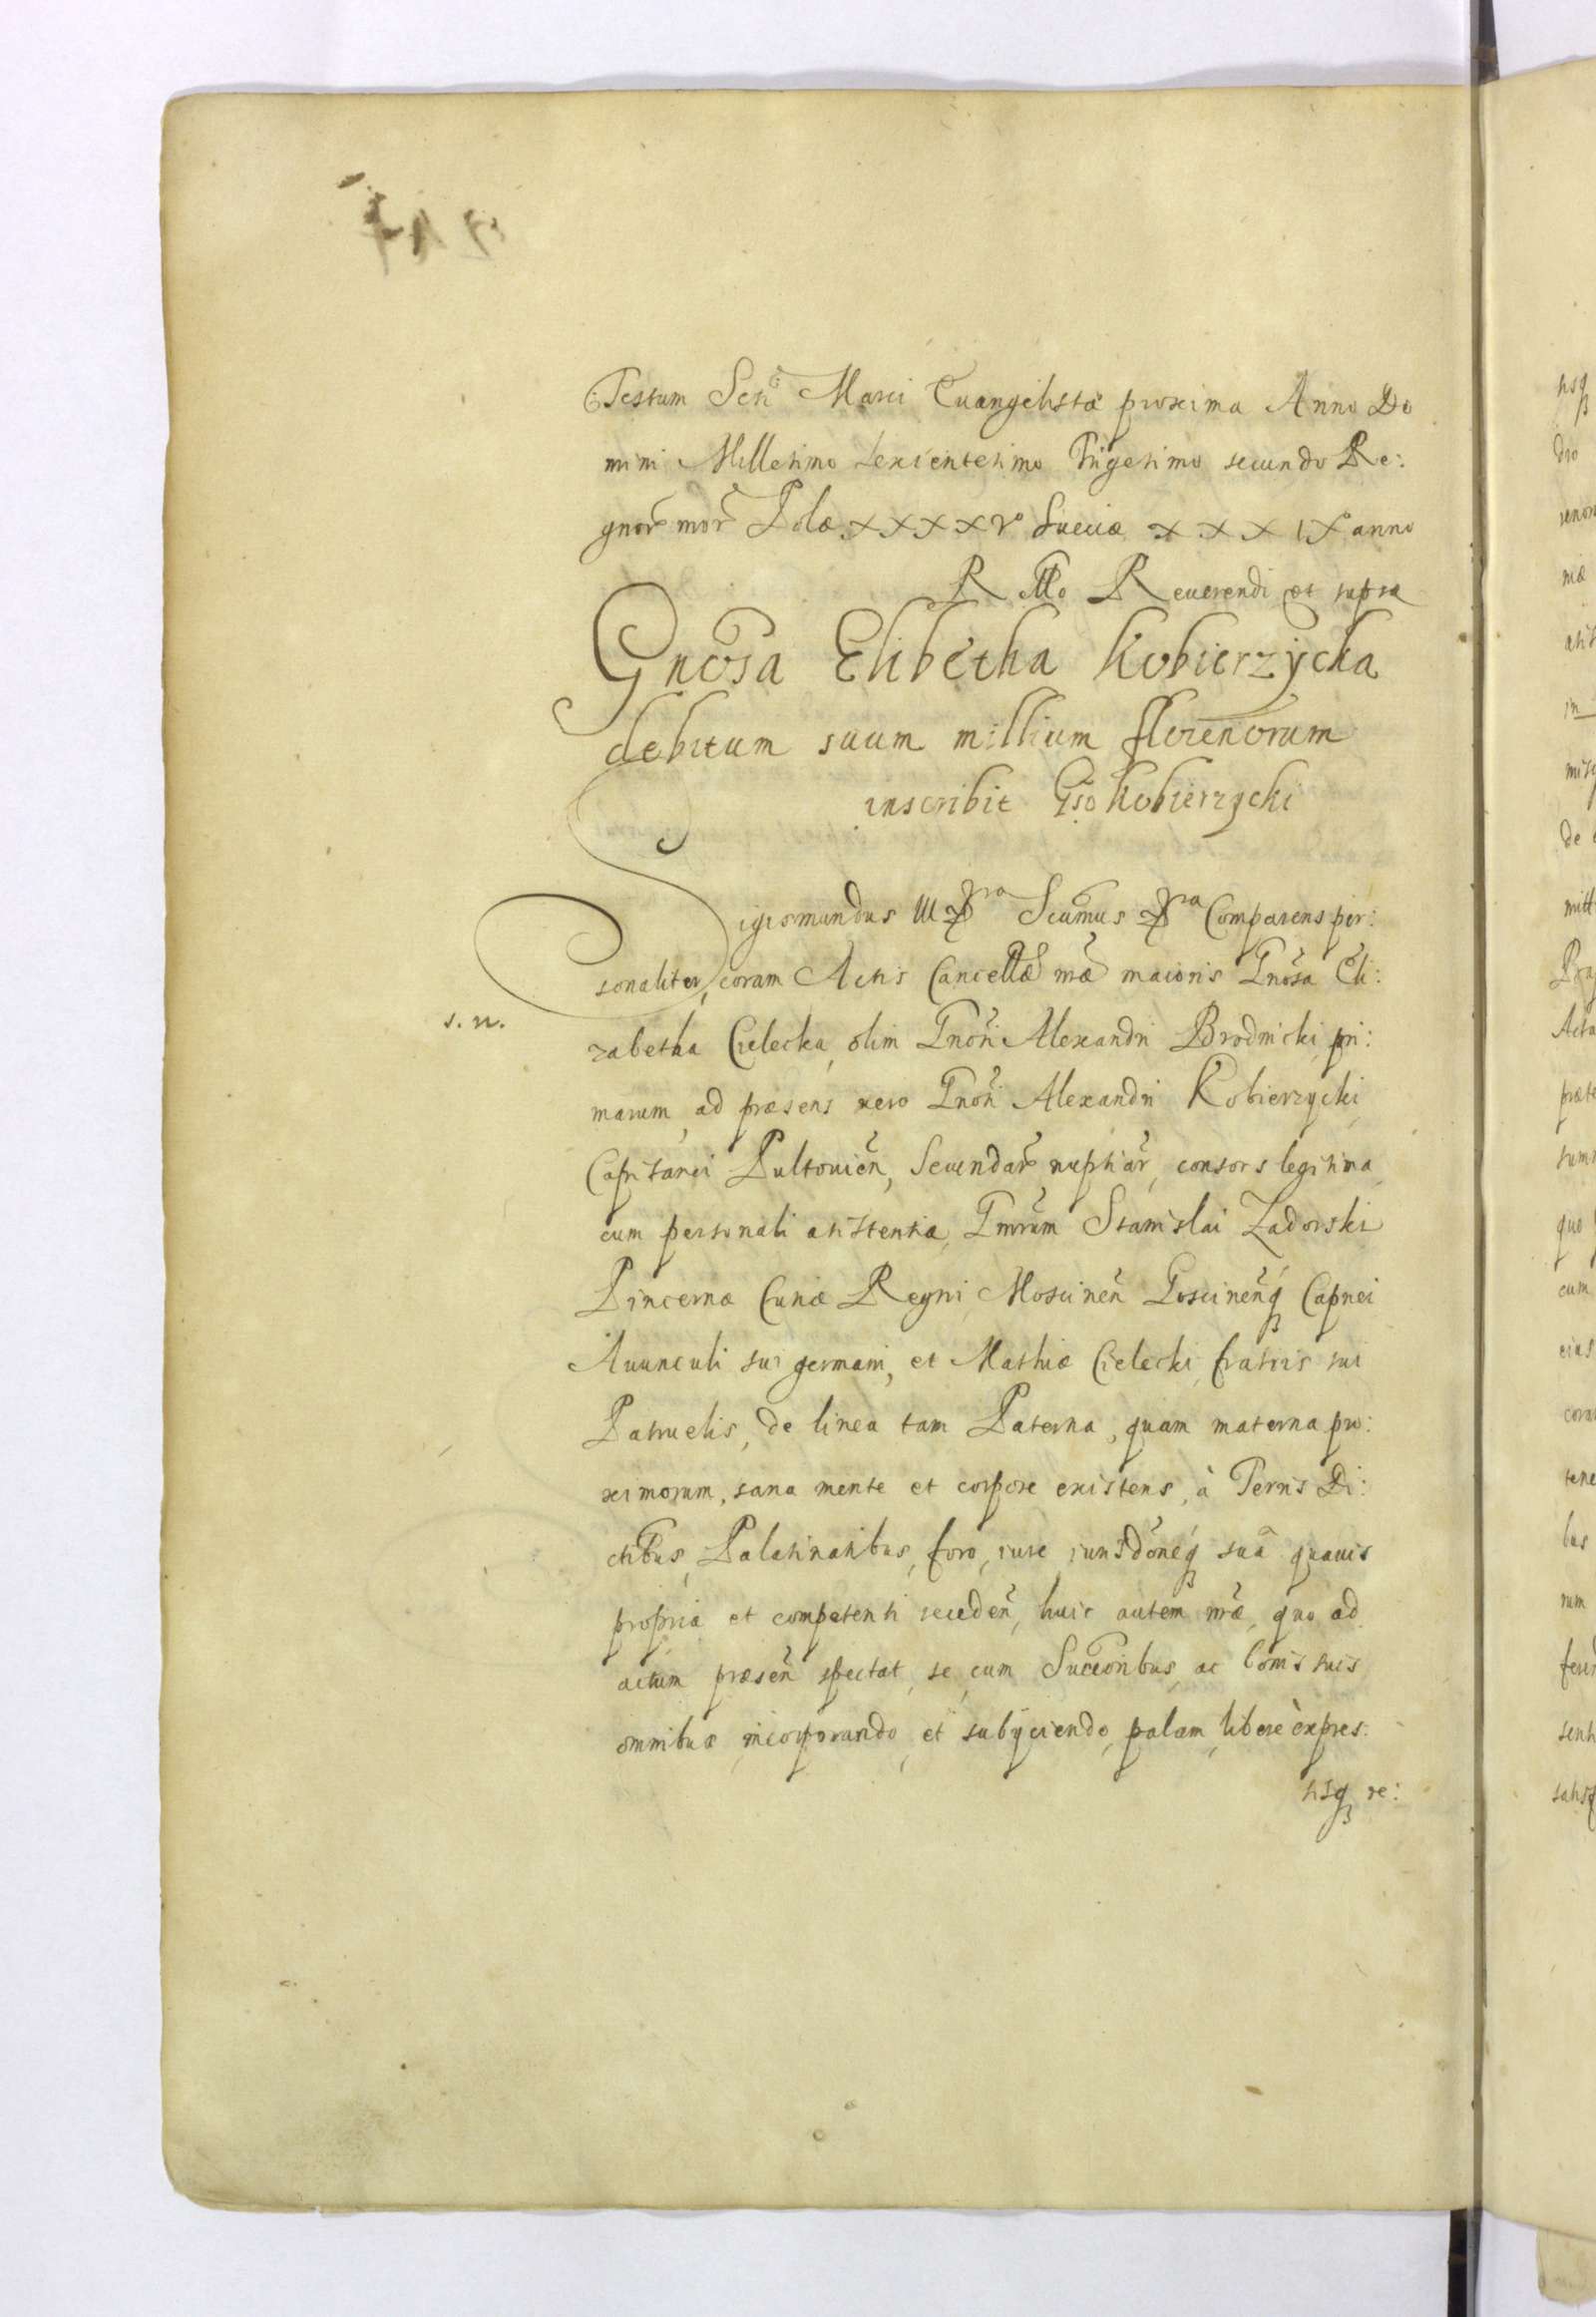 Festum Scti Marci Euangelistæ proxima Anno Do
mini Millesimo sexcentesimo Trigesimo secundo Re:
gnor̃ nror̃ Polæ XXXXVº Sueciæ XXXIX anno
R Mto Reuerendi et supra
Gnõsa Elibetha Kobierzycka
debitum suum millium florenorum
inscribit Gso Kobierzycki
Sigismundus III Scãmus Comparens per:
sonaliter, coram Actis Cancellæ nr̃æ maioris Gnõsa Eli:
s. n.
zabetha Cielecka, olim Gnõsi Alexandri Brodnicki, pri:
marum, ad præsens vero Gnõsi Alexandri Kobierzycki
Capitanei Pultouieñ, Secundar̃ nuptiar̃, consors legitima,
cum personali assistentia, Gnrũm Stanislai Zadorski
Pincernæ Curiæ Regni, Moscineñ Goscineñq Capnei
Auunculi sui germani, et Mathiæ Cielecki, fratris sui
Patruelis, de linea tam Paterna, quam materna pro:
ximorum, sana mente et corpore existens, à Terris Di:
ctibus, Palatinatibus, foro, iure, iurisdõneq suâ quauis
propria et competenti recedeñ, huic autem nr̃æ, quo ad
actum præseñ spectat, se, cum Succõribus, ac bonis suis
omnibus incorporando, et subÿciendo, palam, liberè expres:
sisq re: